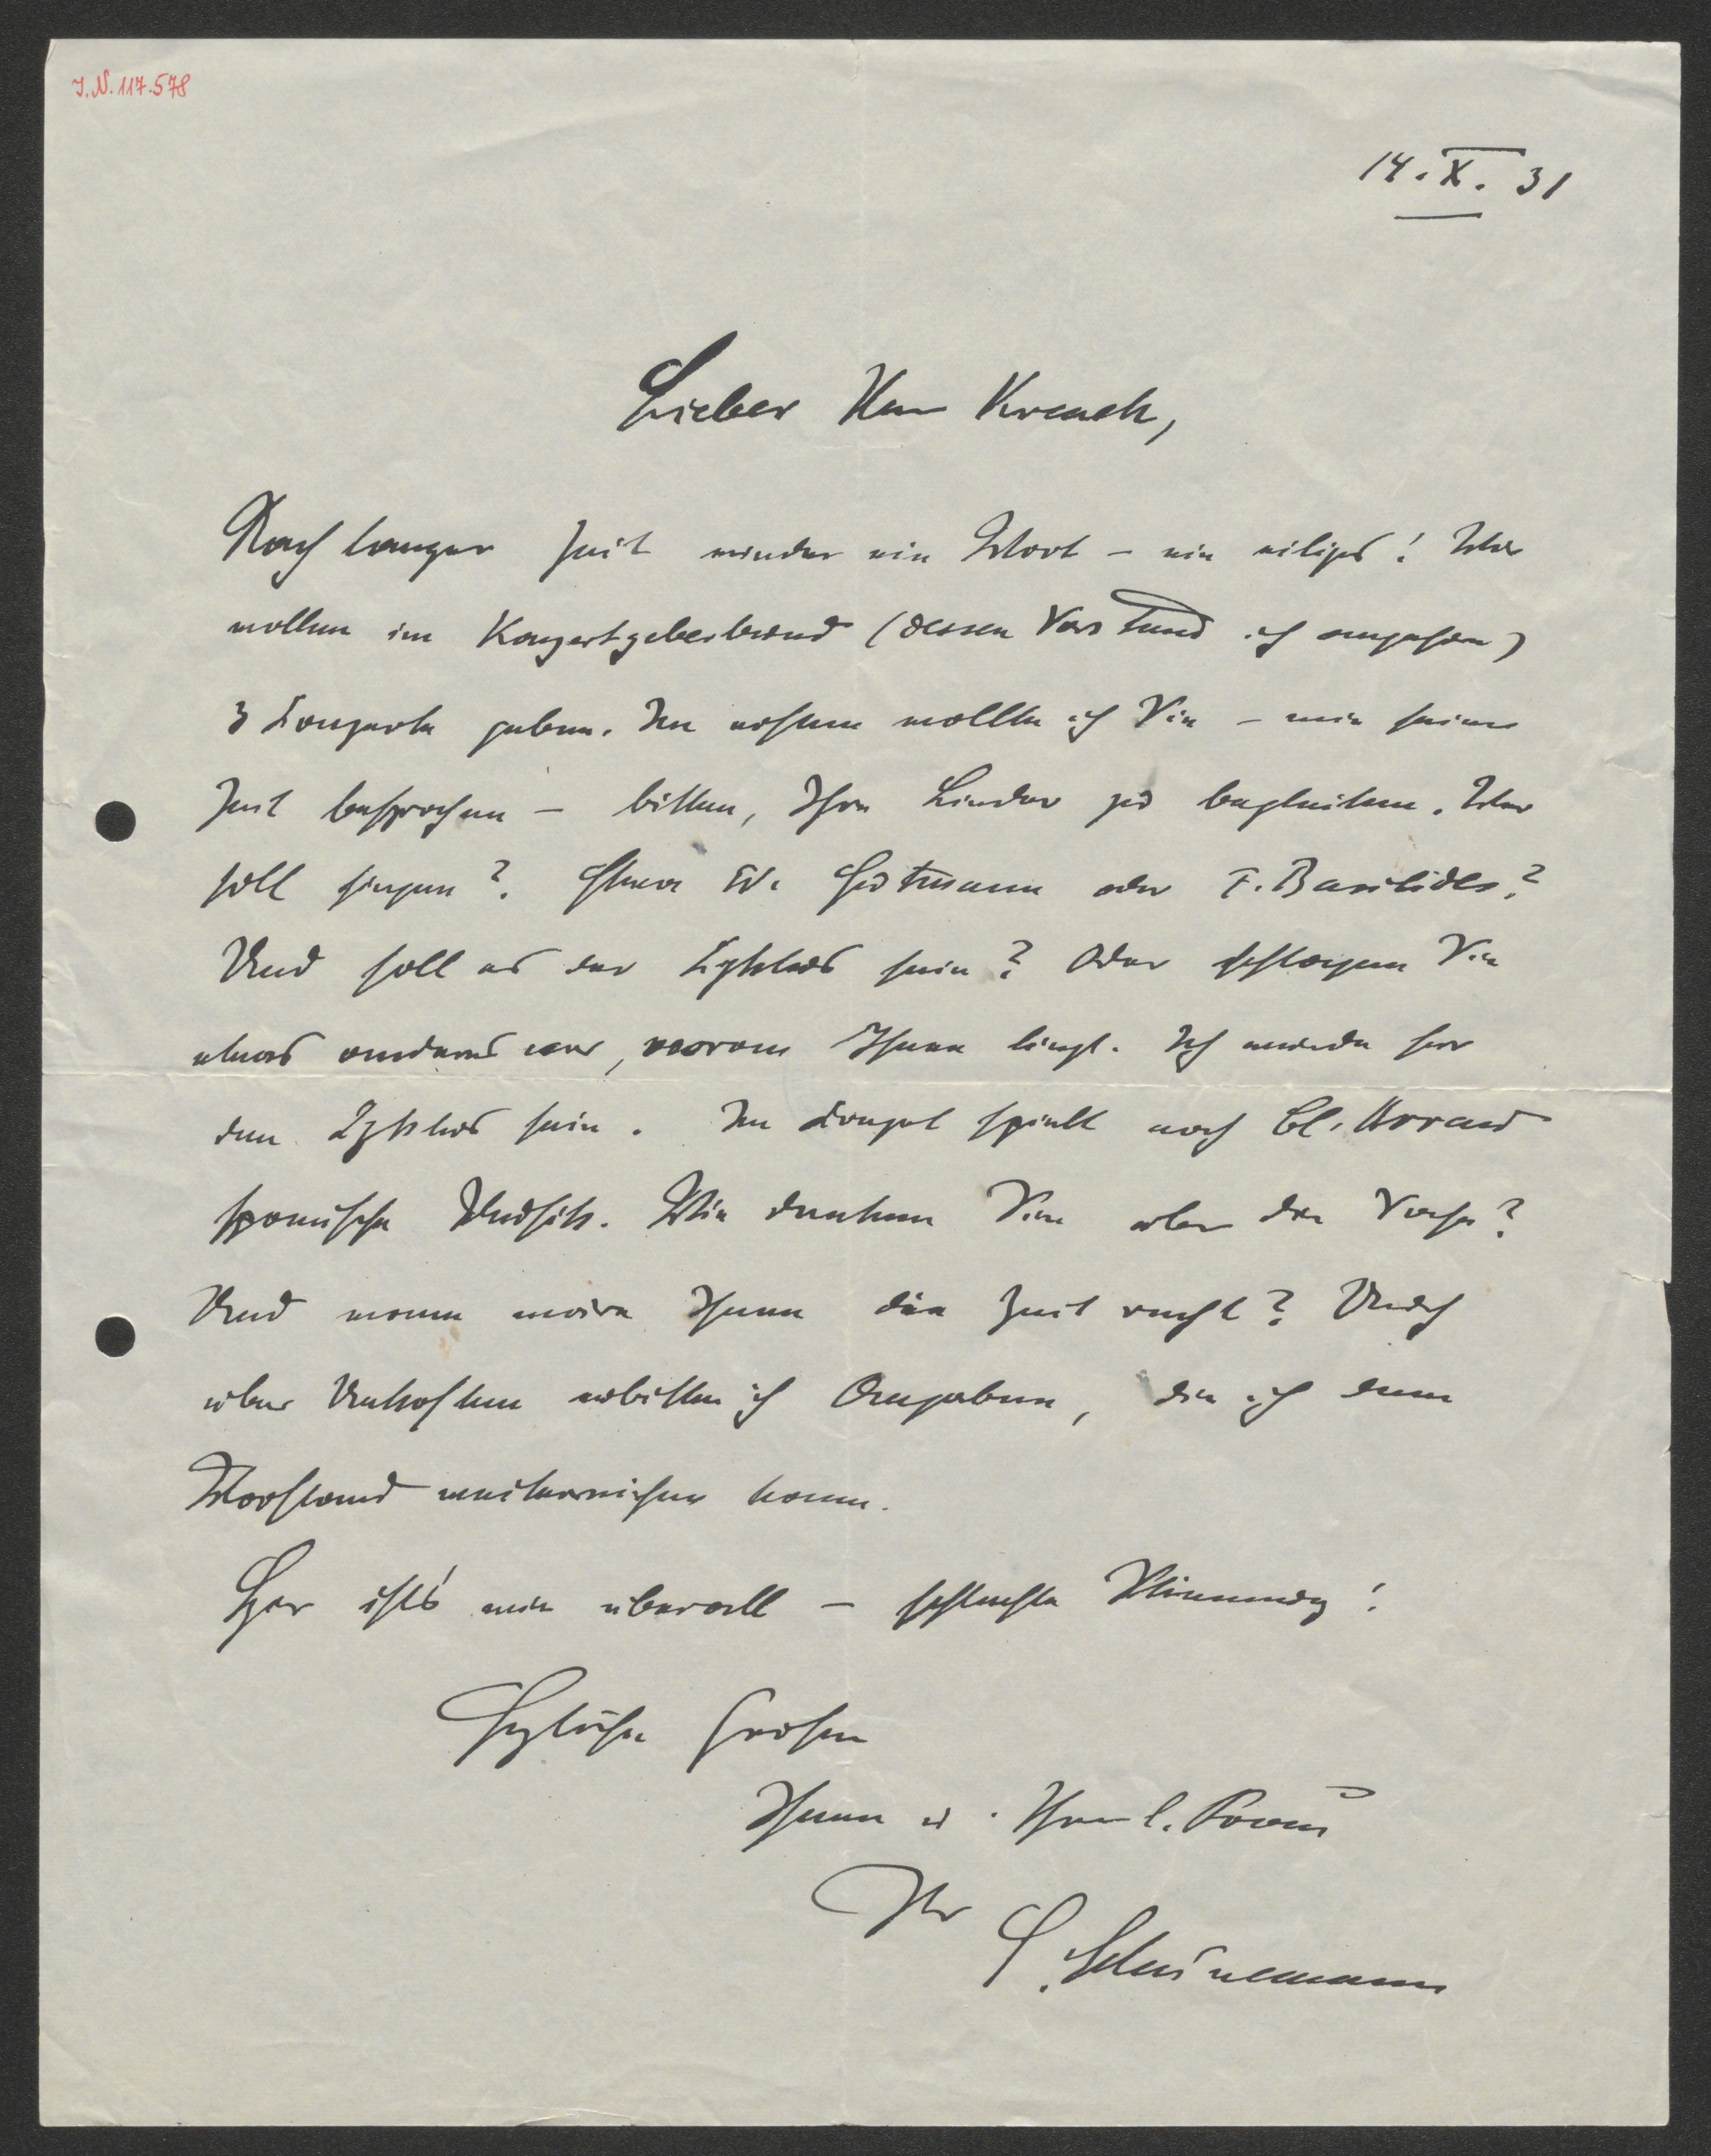 J.N. 117.578
14. X. 31
Lieber Herr Krenek,
Nach langer Zeit wieder ein Wort – ein eiliges! Wir
wollen im Konzertgeberbund (dessen Vorstand ich angehöre)
3 Konzerte geben. Im ersten wollte ich Sie – wie seiner
Zeit besprochen – bitten, Ihre Lieder zu begleiten. Wer
soll singen? Etwa W. Guttmann oder F. Basilides?
Und soll es der Zyklus sein? Oder schlagen Sie
etwas anderes vor, woran Ihnen liegt. Ich würde für
den Zyklus sein. Im Konzert spielt noch Cl. Arrau
spanische Musik. Wie denken Sie über die Sache?
Und wann wäre Ihnen die Zeit recht? Auch
über Unkosten erbitte ich Angaben, die ich dem
Vorstand weiterreichen kann.
Hier ist's wie überall – schlechte Stimmung!
Herzliche Grüsse
Ihnen u. Ihrer l. Frau
Ihr
G. Schünemann